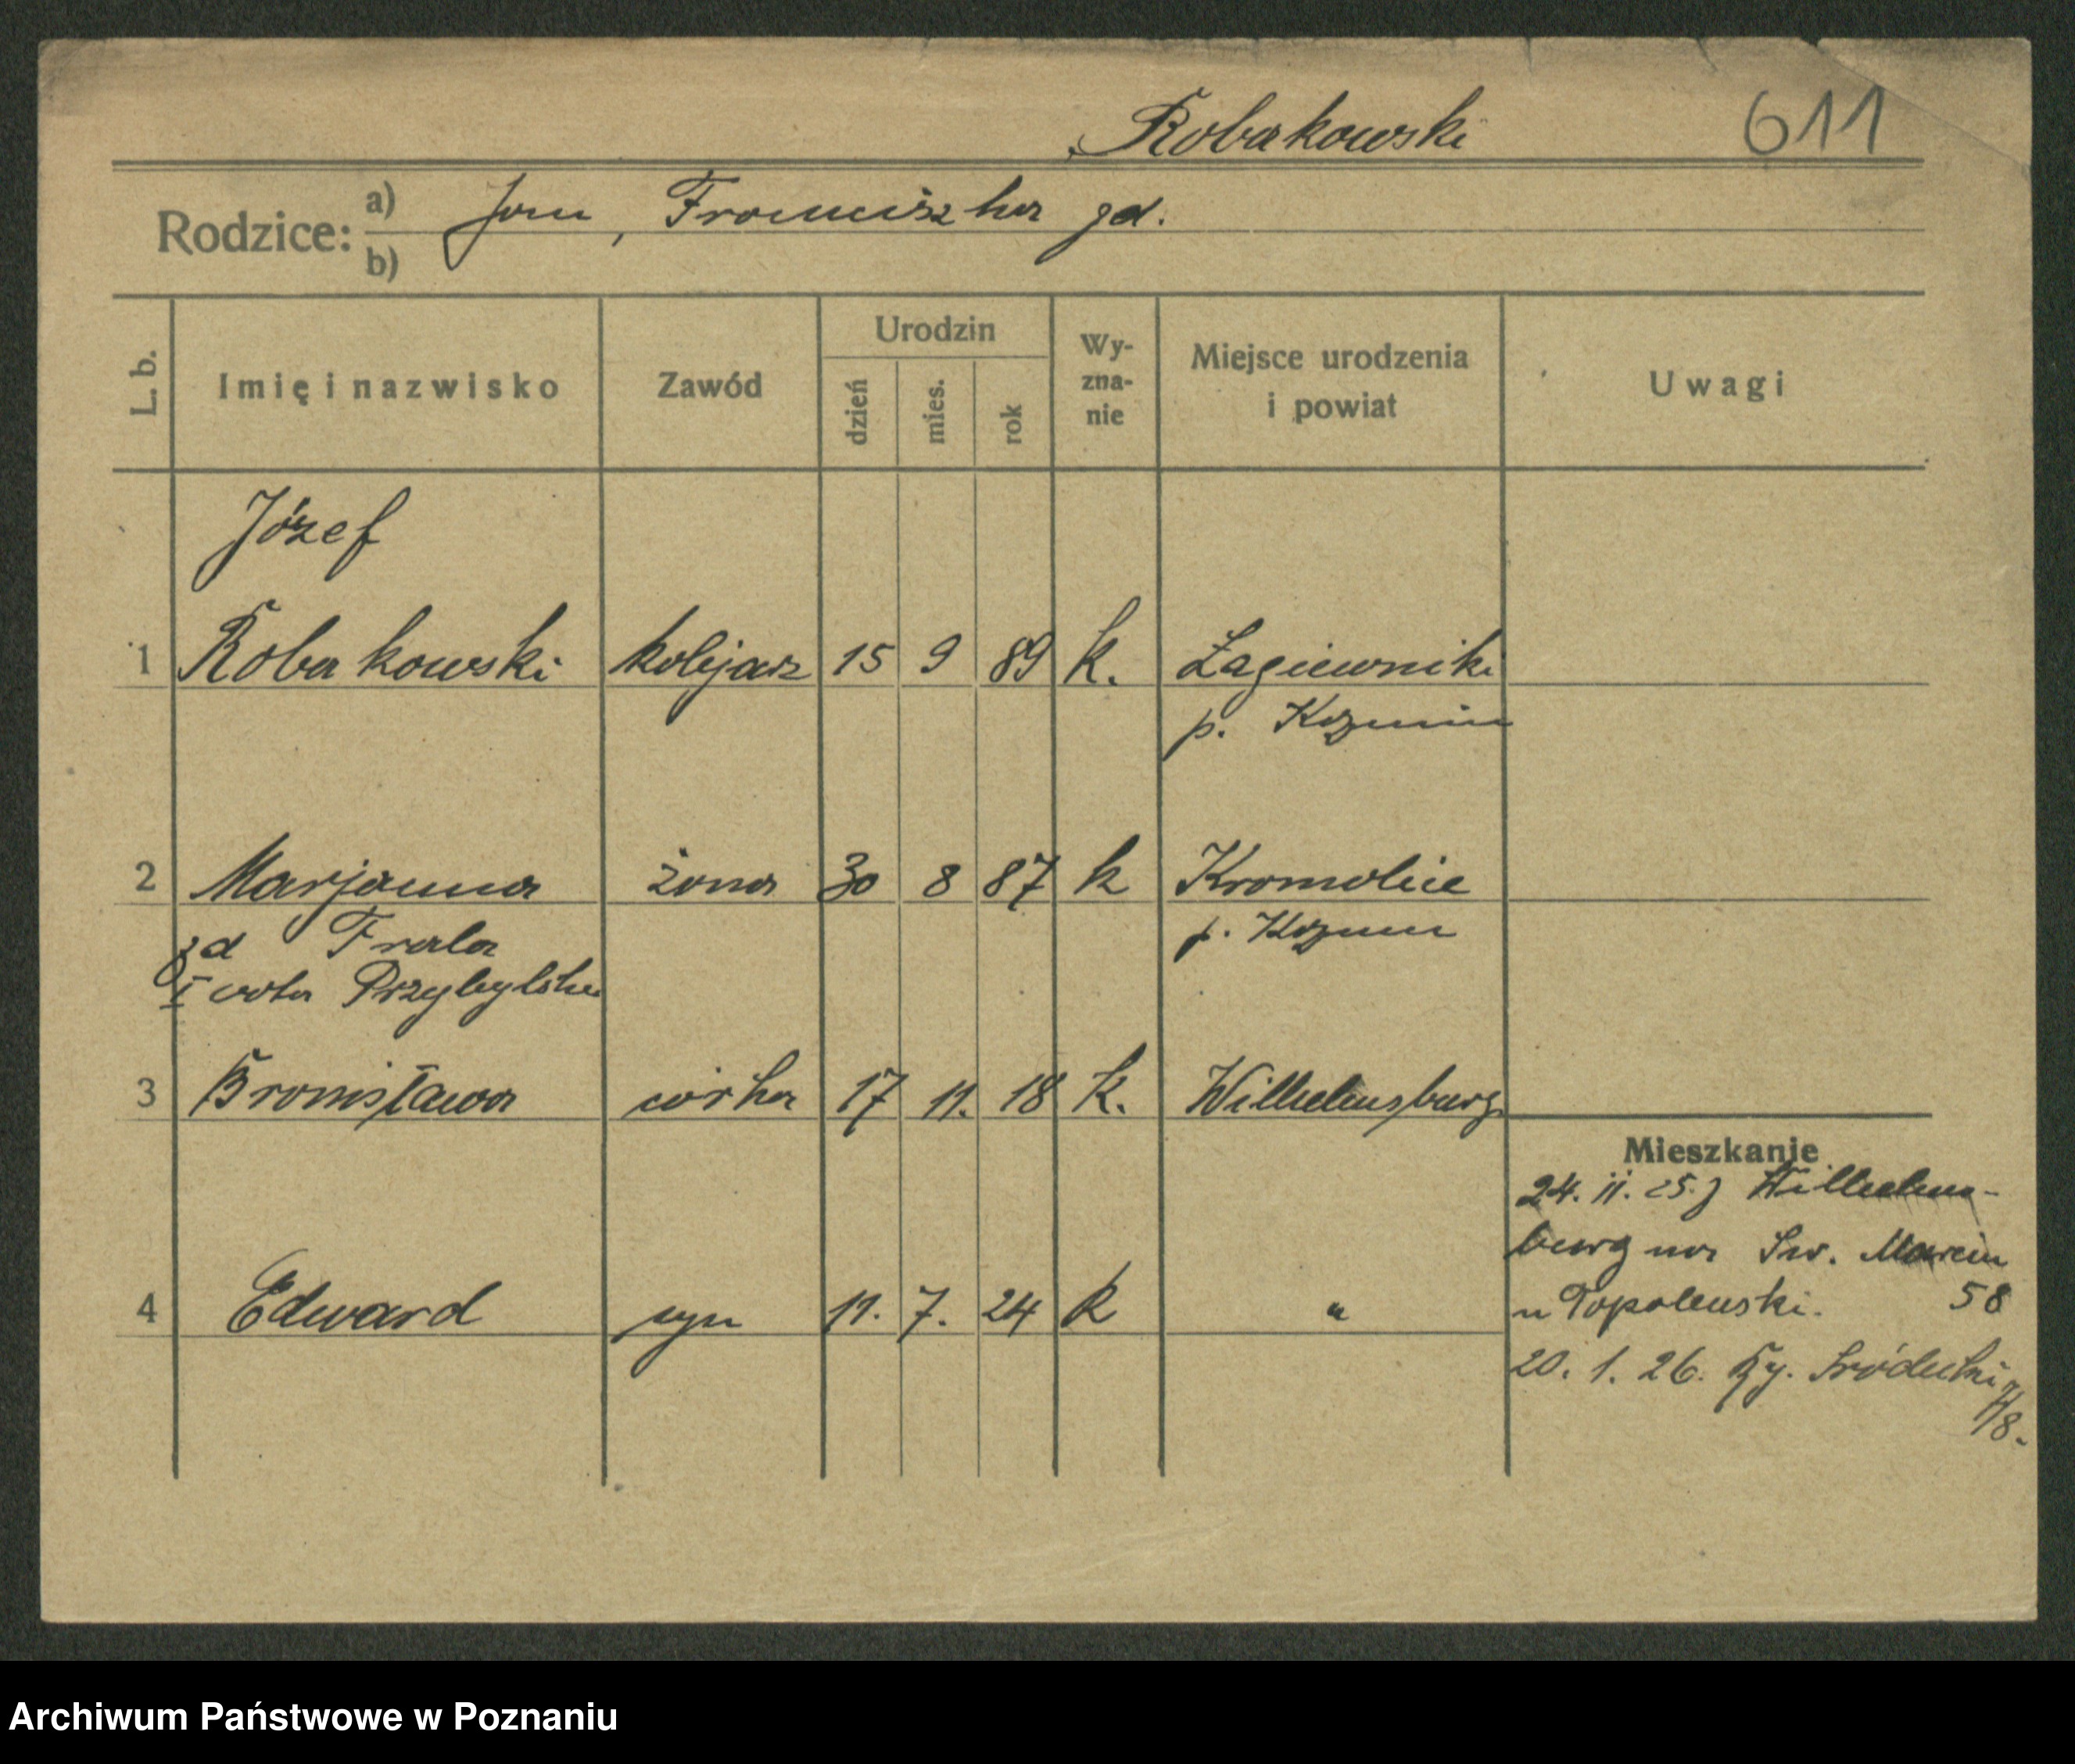 Robakowski 611
Rodzice: a) Jan, Franciszka zd.
b)
L. b. Imię i nazwisko Zawód Urodzin dzień mies. rok Wy-zna-nie Miejsce urodzenia i powiat Uwagi
Józef
1 Robakowski kolejarz 15 9 89 k. Łagiewniki
p. Kozmin
2 Marjanna żona 30 8 87 k Kromolice
zd Frala p. Kozmin
I voto Przybylska
3 Bronisława córka 17 11. 18 k. Wilhelmsburg
Mieszkanie
24. 11. 25. z Wilhelms-
burg na Św. Marcin
u Topolewski. 58
4 Edward syn 11. 7. 24 k "
20. 1. 26. Ry. Śródecki